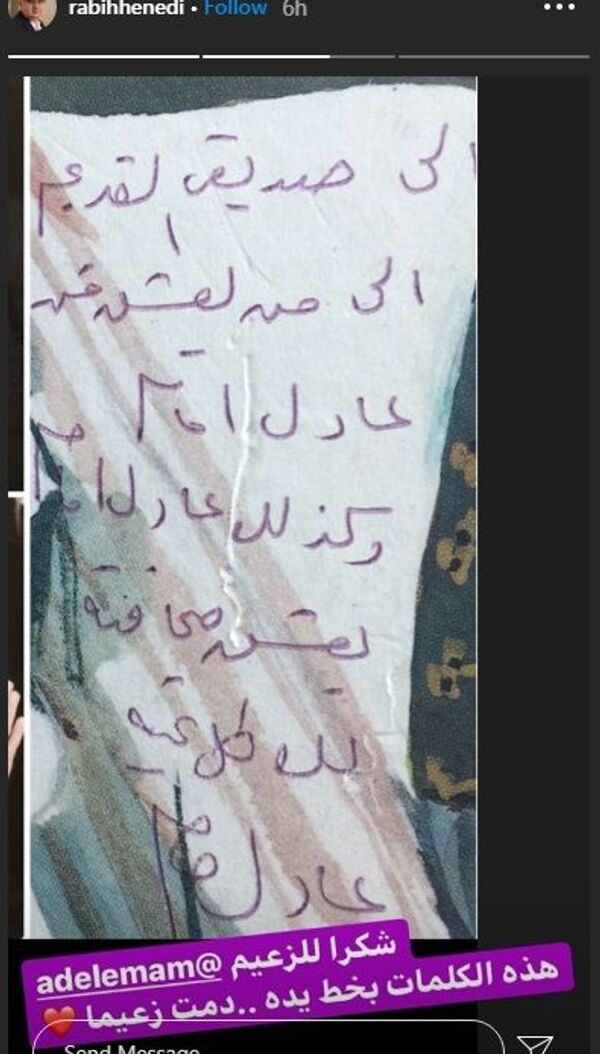 rabihhenedi • Follow 6h
الى صديقي القديم
الى من يعشق فن
عادل امام
وكذلك عادل امام
يعشق صحافته
لك كل محبه
عادل امام
شكرا للزعيم @adelemam
هذه الكلمات بخط يده ..دمت زعيما ❤️
Send Message